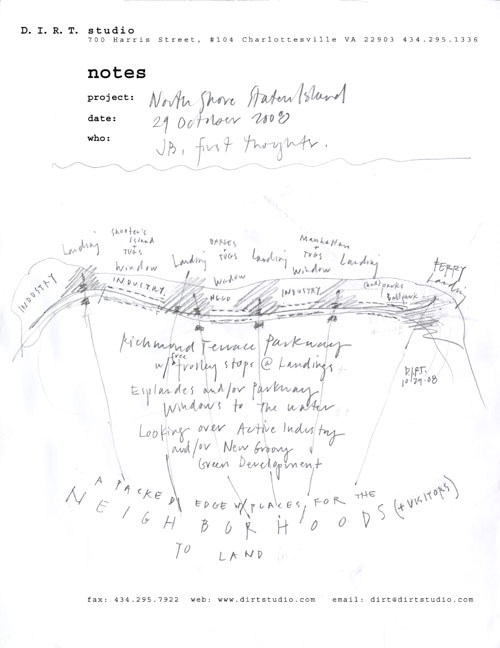 D. I. R. T. studio
700 Harris Street, #104 Charlottesville VA 22903 434.295.1336
notes
project: North Shore Staten Island
date: 29 October 2008
who: JB, first thoughts.
Landing
Shooter's Island + TUGS
Window
Landing
BARGES + TUGS
Window
Landing
Manhattan + TUGS
Window
Landing
FERRY Landing
INDUSTRY
INDUSTRY
HOOD
INDUSTRY
Ballparks
Ballpark
Richmond Terrace Parkway
w/ free trolley stops @ Landings
D.I.R.T.
10/29.08
Esplanades and/or Parkway
Windows to the water
Looking over Active Industry
and/or New Groovy
Green Development
A TACKED EDGE w/ PLACES FOR THE
NEIGHBORHOODS (+ VISITORS)
TO LAND
fax: 434.295.7922 web: www.dirtstudio.com email: dirt@dirtstudio.com